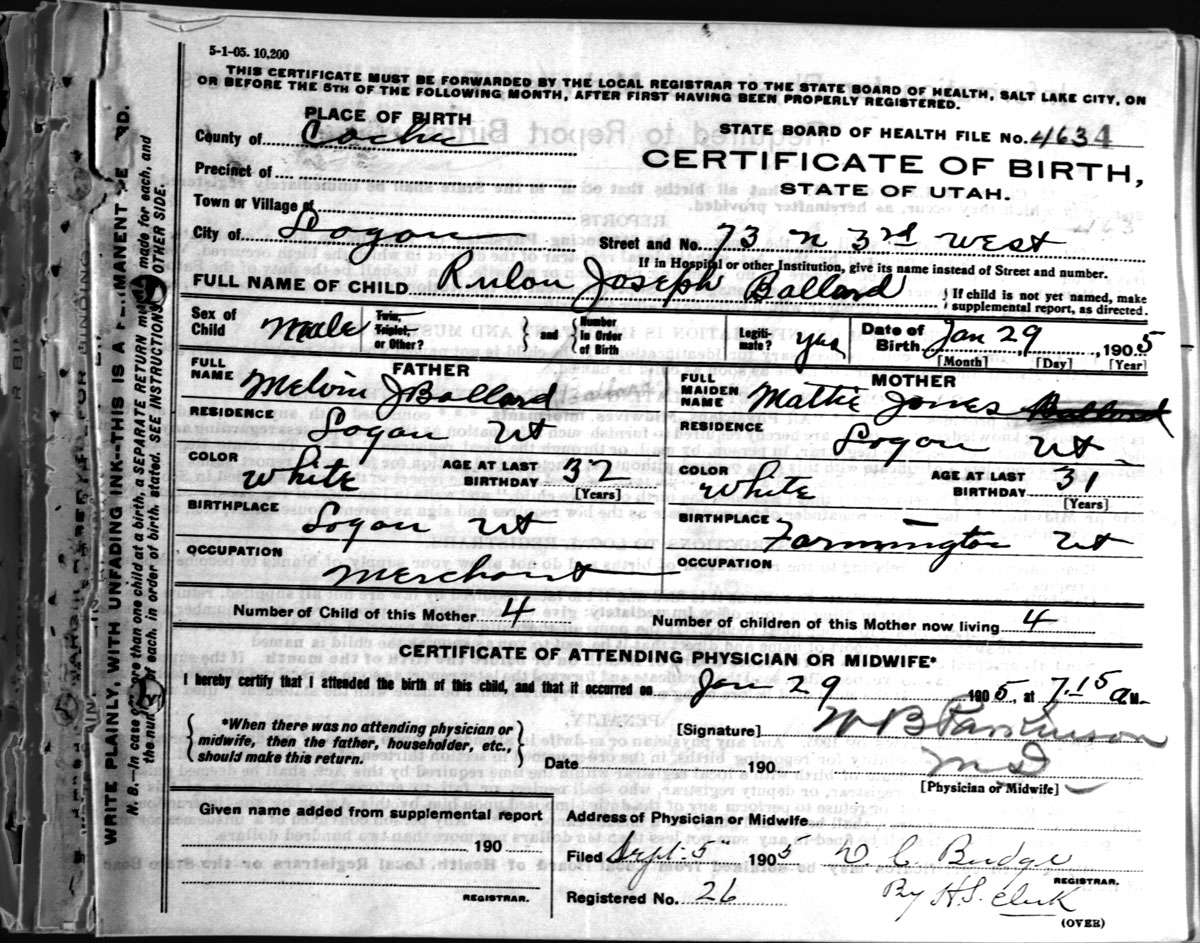 5-1-05. 10,200
THIS CERTIFICATE MUST BE FORWARDED BY THE LOCAL REGISTRAR TO THE STATE BOARD OF HEALTH, SALT LAKE CITY, ON
OR BEFORE THE 5TH OF THE FOLLOWING MONTH, AFTER FIRST HAVING BEEN PROPERLY REGISTERED.
PLACE OF BIRTH
County of Cache
STATE BOARD OF HEALTH FILE No. 4634
CERTIFICATE OF BIRTH,
STATE OF UTAH.
Precinct of
Town or Village of
City of Logan
Street and No. 73 n 3rd West
If in Hospital or other Institution, give its name instead of Street and number.
FULL NAME OF CHILD Rulon Joseph Ballard
} If child is not yet named, make
supplemental report, as directed.
Sex of Child Male
Twin, Triplet, or Other?
} and {
Number in Order of Birth
Legitimate? Yes
Date of Birth Jan 29, 1905
[Month] [Day] [Year]
FATHER
FULL NAME Melvin J Ballard
RESIDENCE Logan Ut
COLOR White
AGE AT LAST BIRTHDAY 32
[Years]
BIRTHPLACE Logan Ut
OCCUPATION Merchant
MOTHER
FULL MAIDEN NAME Mattie Jones Ballard
RESIDENCE Logan Ut
COLOR White
AGE AT LAST BIRTHDAY 31
[Years]
BIRTHPLACE Farmington Ut
OCCUPATION
Number of Child of this Mother 4
Number of children of this Mother now living 4
CERTIFICATE OF ATTENDING PHYSICIAN OR MIDWIFE*
I hereby certify that I attended the birth of this child, and that it occurred on Jan 29 1905, at 7-15 a M.
{ *When there was no attending physician or
midwife, then the father, householder, etc.,
should make this return. }
[Signature] W B Parkinson
Date 190
M D
[Physician or Midwife]
Given name added from supplemental report
190
REGISTRAR.
Address of Physician or Midwife
Filed Sept 5" 1905 D. C. Budge
REGISTRAR.
Registered No. 26
By H.S. Clerk
(OVER)
WRITE PLAINLY, WITH UNFADING INK--THIS IS A
N. B.--In case of more than one child at a birth, a SEPARATE RETURN must be made for each, and
the number of each, in order of birth, stated. SEE INSTRUCTIONS ON OTHER SIDE.